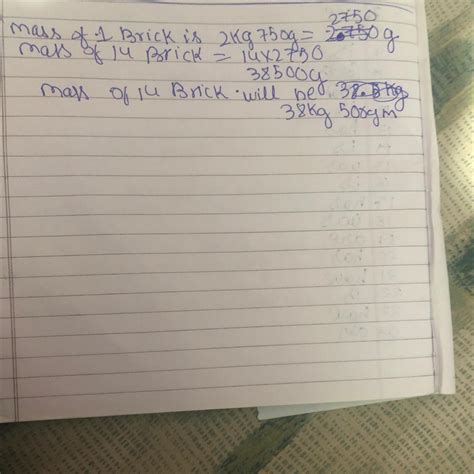 2750
mass of 1 Brick is 2Kg 750g = 2.750 g
mass of 14 Brick = 14x2750
38500g
mass of 14 Brick will be 38.5kg
38Kg 500gm